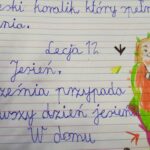 eski koralik który speł
nia.
Lecja 12
Jesień.
ześnia przypada
wszy dzień jesieni
W domu